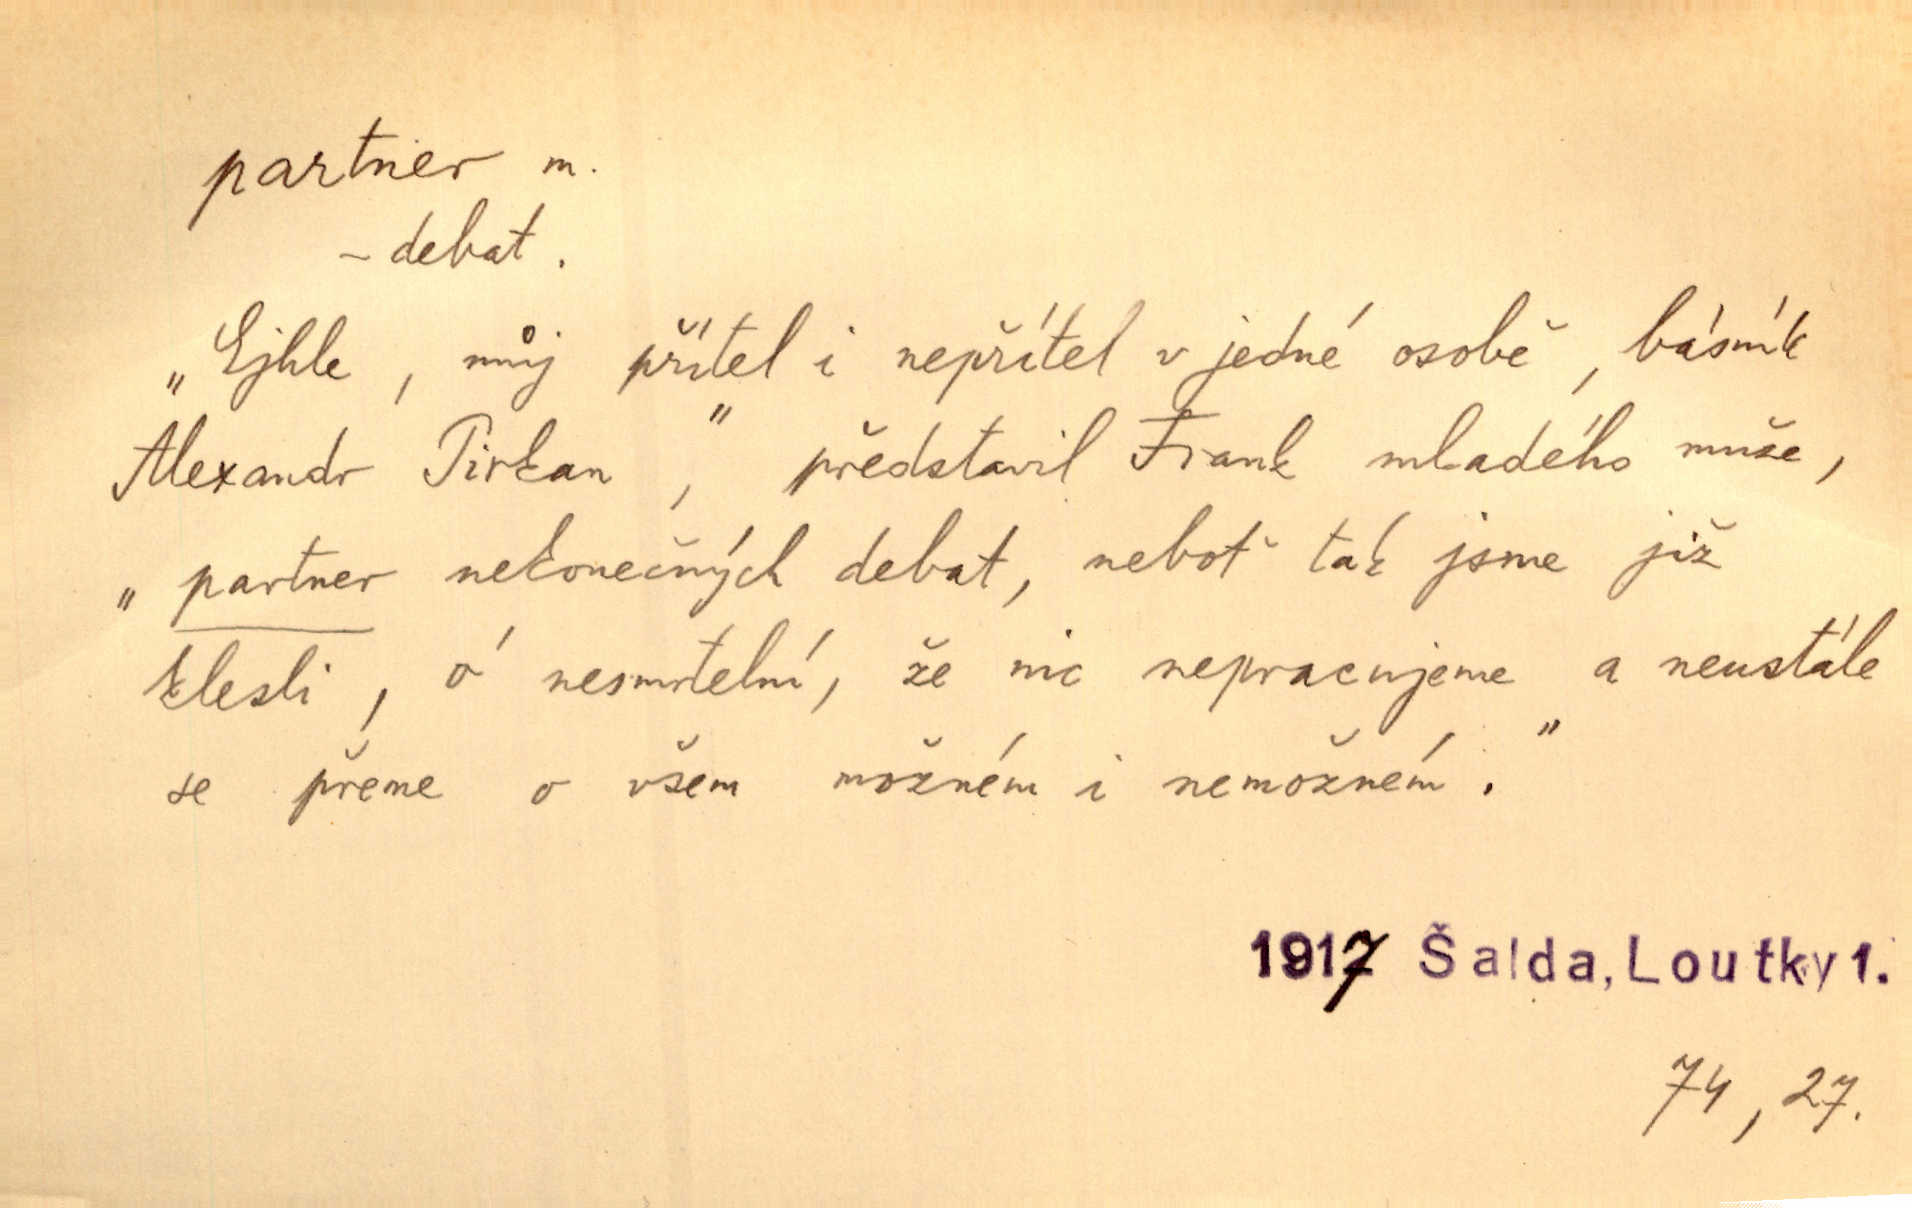 partner m.
– debat.
„Ejhle, můj přítel i nepřítel v jedné osobě, básník
Alexandr Pirkan," představil Frank mladého muže,
„partner nekonečných debat, neboť tak jsme již
klesli, ó nesmrtelní, že nic nepracujeme a neustále
se přeme o všem možném i nemožném."
1917 Šalda, Loutky 1.
74, 27.